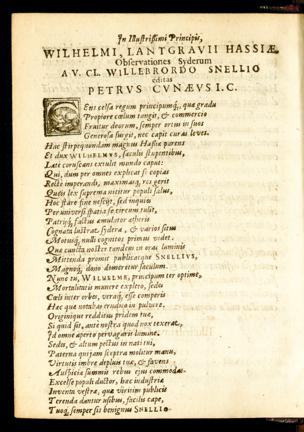 In Illustrissimi Principis,
WILHELMI, LANTGRAVII HASSIÆ
Observationes Syderum
A V. CL. WILLEBRORDO SNELLIO
editas
PETRVS CVNÆVS I. C.
GEns celsa regum principumq;, quæ gradu
Propiore cœlum tangit, & commercio
Fruitur deorum, semper ortus in suos
Generosa surgit, nec capit curas leves.
Hac stirpe quondam magnus Hassiæ parens
Et dux WILHELMVS, sæculi stupentibus,
Late coruscans extulit mondo caput:
Qui, dum per omnes explicat se copias
Recti imperandi, maximaq; res gerit
Queis lex suprema nititur populi salus,
Hoc stare fine nescit, sed inquies
Per universi spatia se circum tulit,
Patrijq, factus æmulator ætheris
Cognata lustrat sydera, & varios situs
Motusq, nulli cognitos primus videt.
Quæ cuncta nostri tandem in oras luminis
Mittenda promit publicatque SNELLIVS,
Magnoq, dono demeretur sæculum.
Nunc tu, WILHELME, principum ter optime,
Mortalitatis munere expleto, sedes
Cæli inter orbes, veraq, esse comperis
Hæc quæ notabas eruditio in pulvere.
Originique redditus pridem tuæ,
Si quid sit, ante nostra quod nox texerat,
Id omne aperto pervagaris lumine.
Sed u, & altum pectus in nati tui,
Paterna qui jam sceptra molitur manu,
Virtutis imbre depluis tuæ, & favens
Auspicia summis rebus ejus commodas.
Excelse populi ductor, hac industria
Inventa vestra, quæ viritim publicis
Terenda dantur usibus, facili cape,
Tuoq, semper sis benignus SNELLIO.